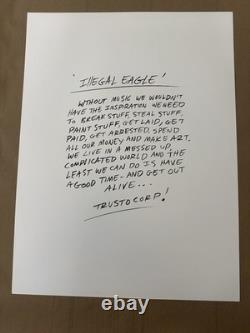 'ILLEGAL EAGLE'
WITHOUT MUSIC WE WOULDN'T
HAVE THE INSPIRATION WE NEED
TO BREAK STUFF, STEAL STUFF,
PAINT STUFF, GET LAID, GET
PAID, GET ARRESTED, SPEND
ALL OUR MONEY AND MAKE ART.
WE LIVE IN A MESSED UP,
COMPLICATED WORLD AND THE
LEAST WE CAN DO IS HAVE
A GOOD TIME - AND GET OUT
ALIVE...
TRUSTOCORP!
130.ebth.com